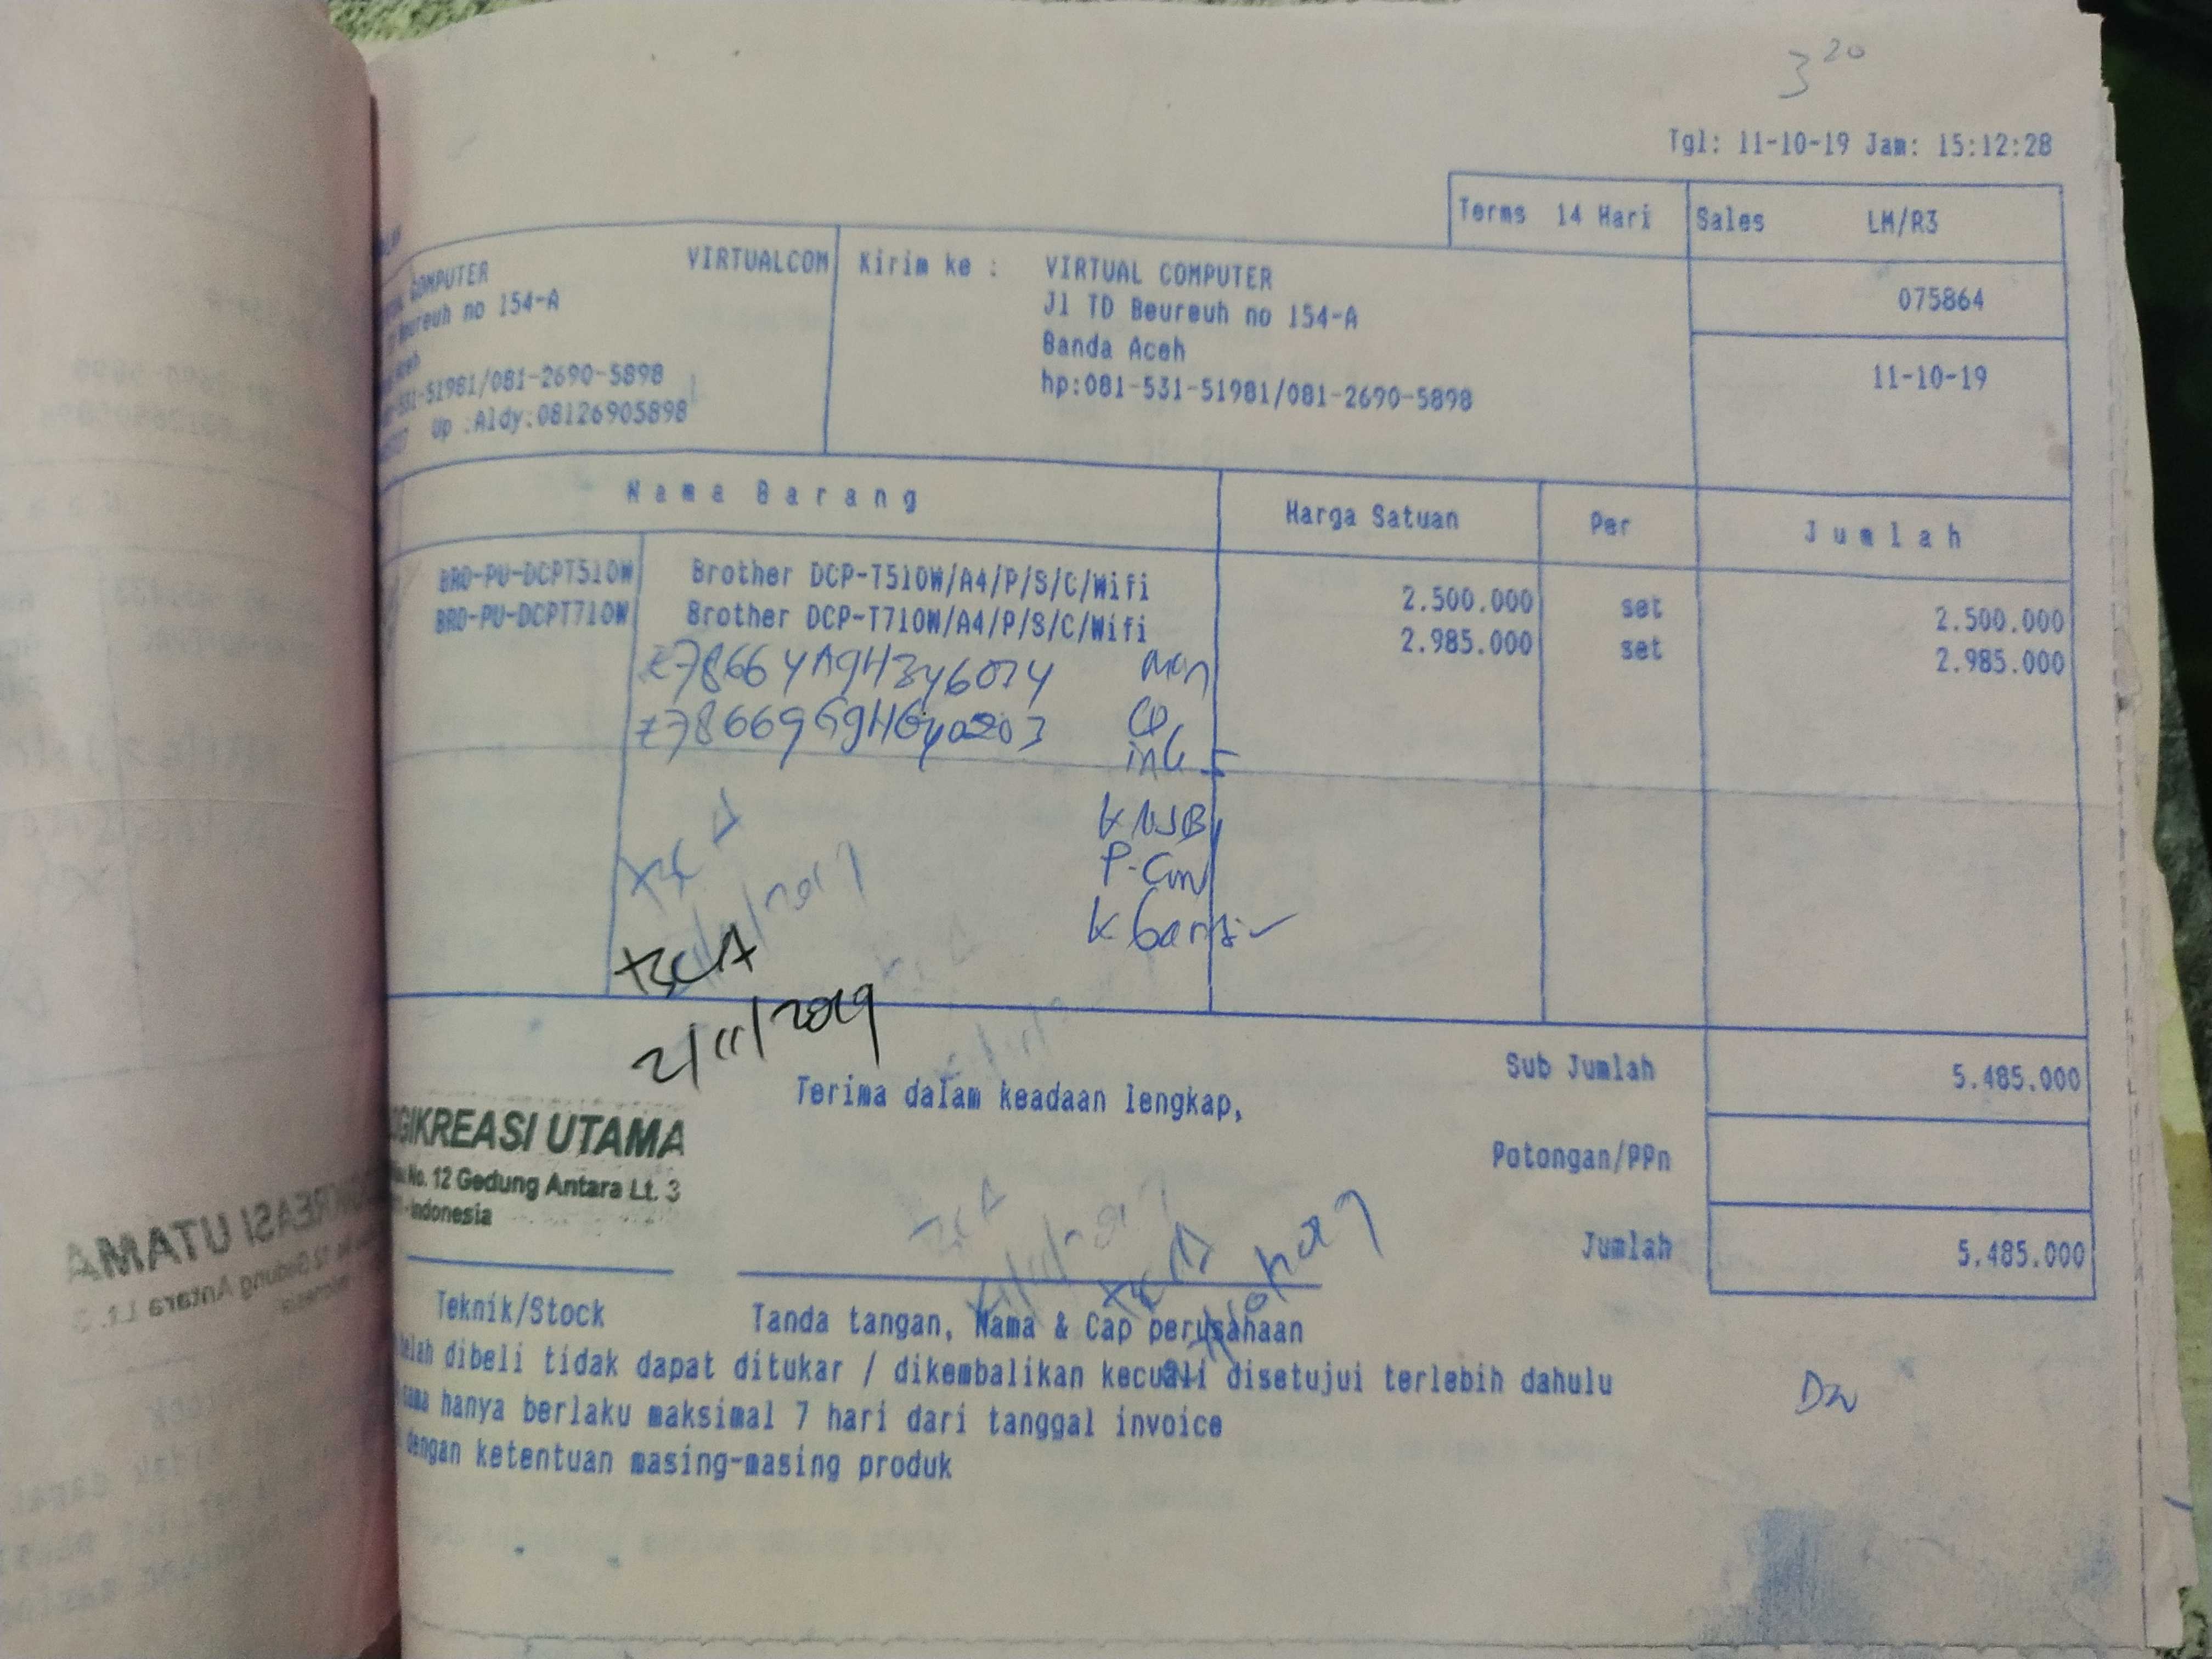 3 20
Tgl: 11-10-19 Jam: 15:12:28
Terms 14 Hari Sales LM/R3
COMPUTER VIRTUALCOM Kirim ke : VIRTUAL COMPUTER
075864
Beureuh no 154-A Jl TD Beureuh no 154-A
Aceh Banda Aceh
11-10-19
531-51981/081-2690-5898 hp:081-531-51981/081-2690-5898
Up :Aldy:08126905898
Nama Barang Harga Satuan Per Jumlah
BRO-PU-DCPT510W Brother DCP-T510W/A4/P/S/C/Wifi 2.500.000 set 2.500.000
BRO-PU-DCPT710W Brother DCP-T710W/A4/P/S/C/Wifi 2.985.000 set 2.985.000
K USB
P-Con
BCA
2/11/2019
Sub Jumlah 5.485.000
Terima dalam keadaan lengkap,
GIKREASI UTAMA
No. 12 Gedung Antara Lt. 3
Indonesia
Potongan/PPn
Jumlah 5.485.000
Teknik/Stock Tanda tangan, Nama & Cap perusahaan
telah dibeli tidak dapat ditukar / dikembalikan kecuali disetujui terlebih dahulu
sama hanya berlaku maksimal 7 hari dari tanggal invoice
dengan ketentuan masing-masing produk